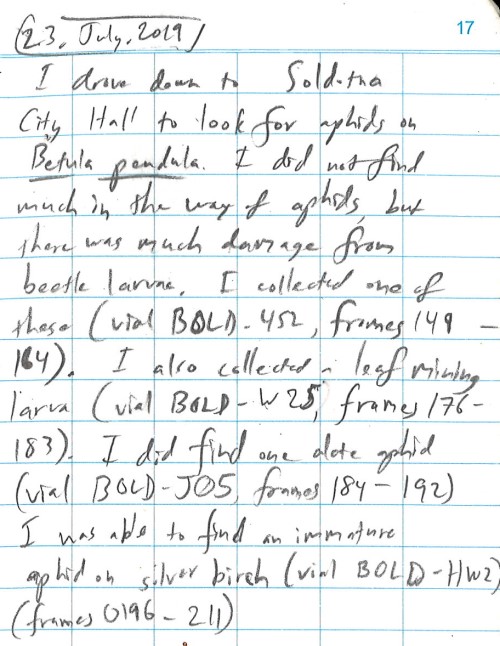 17
23. July. 2019
I drove down to Soldotna
City Hall to look for aphids on
Betula pendula. I did not find
much in the way of aphids, but
there was much damage from
beetle larvae. I collected one of
these (vial BOLD-452, frames 149 –
164). I also collected a leaf mining
larva (vial BOLD-W25, frames 176–
183). I did find one alate aphid
(vial BOLD-JO5, frames 184–192)
I was able to find an immature
aphid on silver birch (vial BOLD-HW2)
(frames 0196–211)